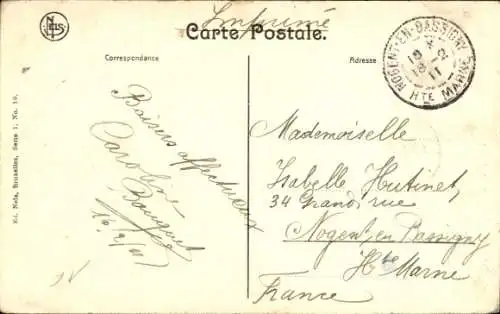 Imprimé
Carte Postale.
Correspondance
Adresse
NELS
NOGENT-EN-BASSIGNY
19
18-2
11
HTE MARNE
Ed. Nels, Bruxelles, Serie 1, No. 19.
Baisers affectueux
Caroline
Bouquet
16/2/11
Mademoiselle
Isabelle Hutinet,
34 Grand, rue
Nogent en Bassigny
Hte Marne
France